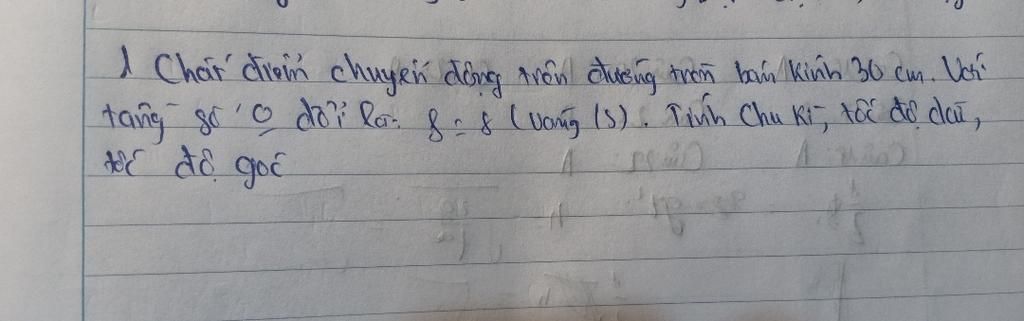 1 Chất điểm chuyển động trên đường tròn bán kính 30 cm. Với
tầng số o đổi là: f = 8 (vòng/s). Tính chu kì, tốc độ dài,
tốc độ góc